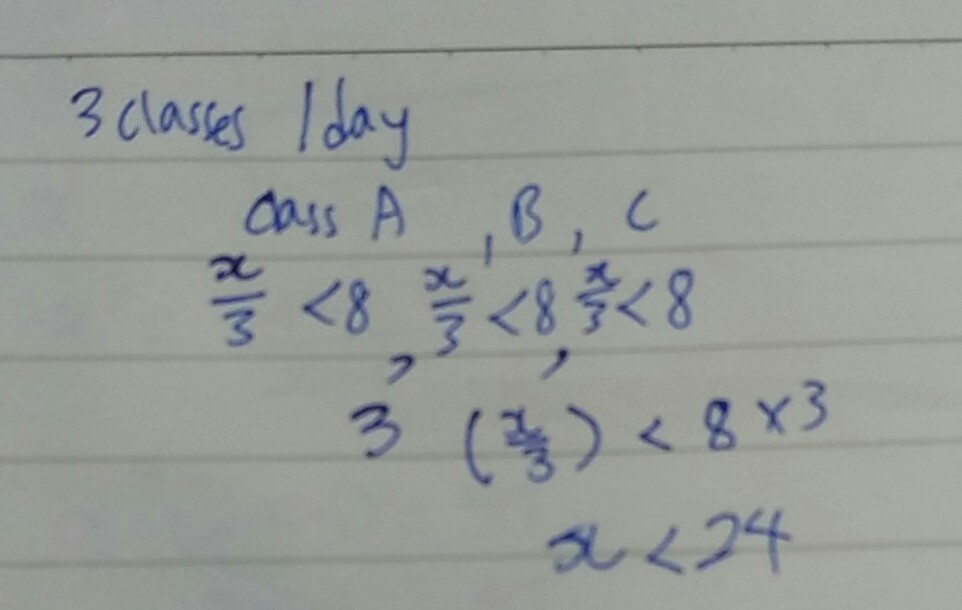 3 classes /day
Class A , B , C
x/3 < 8 , x/3 < 8 , x/3 < 8
3 (x/3) < 8 × 3
x < 24